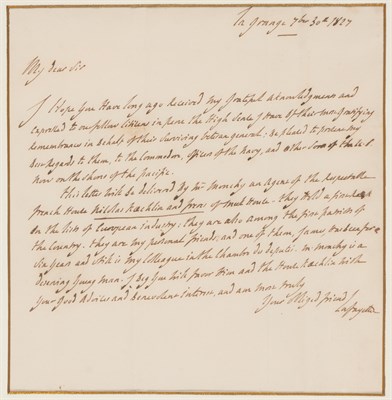 La Grange 7bre 30th 1827
My dear Sir
I Hope You Have long ago received my Grateful aknowledgments and
expressed to our fellow Citizens in peru the High Sense I Have of their most Gratifying
remembrance in Behalf of their Surviving veteran general; Be pleased to present my
Best regards to them, to the Commodore, officers of the navy, and other Sons of the U. S.
Now on the Shores of the Pacific.
This letter will be delivered By Mr. Monchy an Agent of the respectable
french House Nicolas Kœchlin and freres of mulhouse. they Hold a
on the lists of European industry; they are also among the fine patriots of
the Country. they are my personal friends, and one of them, Has Been for
Six Years and Still is my Colleague in the Chambre des deputés. m. monchy is a
deserving Young man. I Beg You will favor Him and the House Kœchlin with
Your Good Advices and Benevolent interest, and am most truly
Your obliged friend
Lafayette